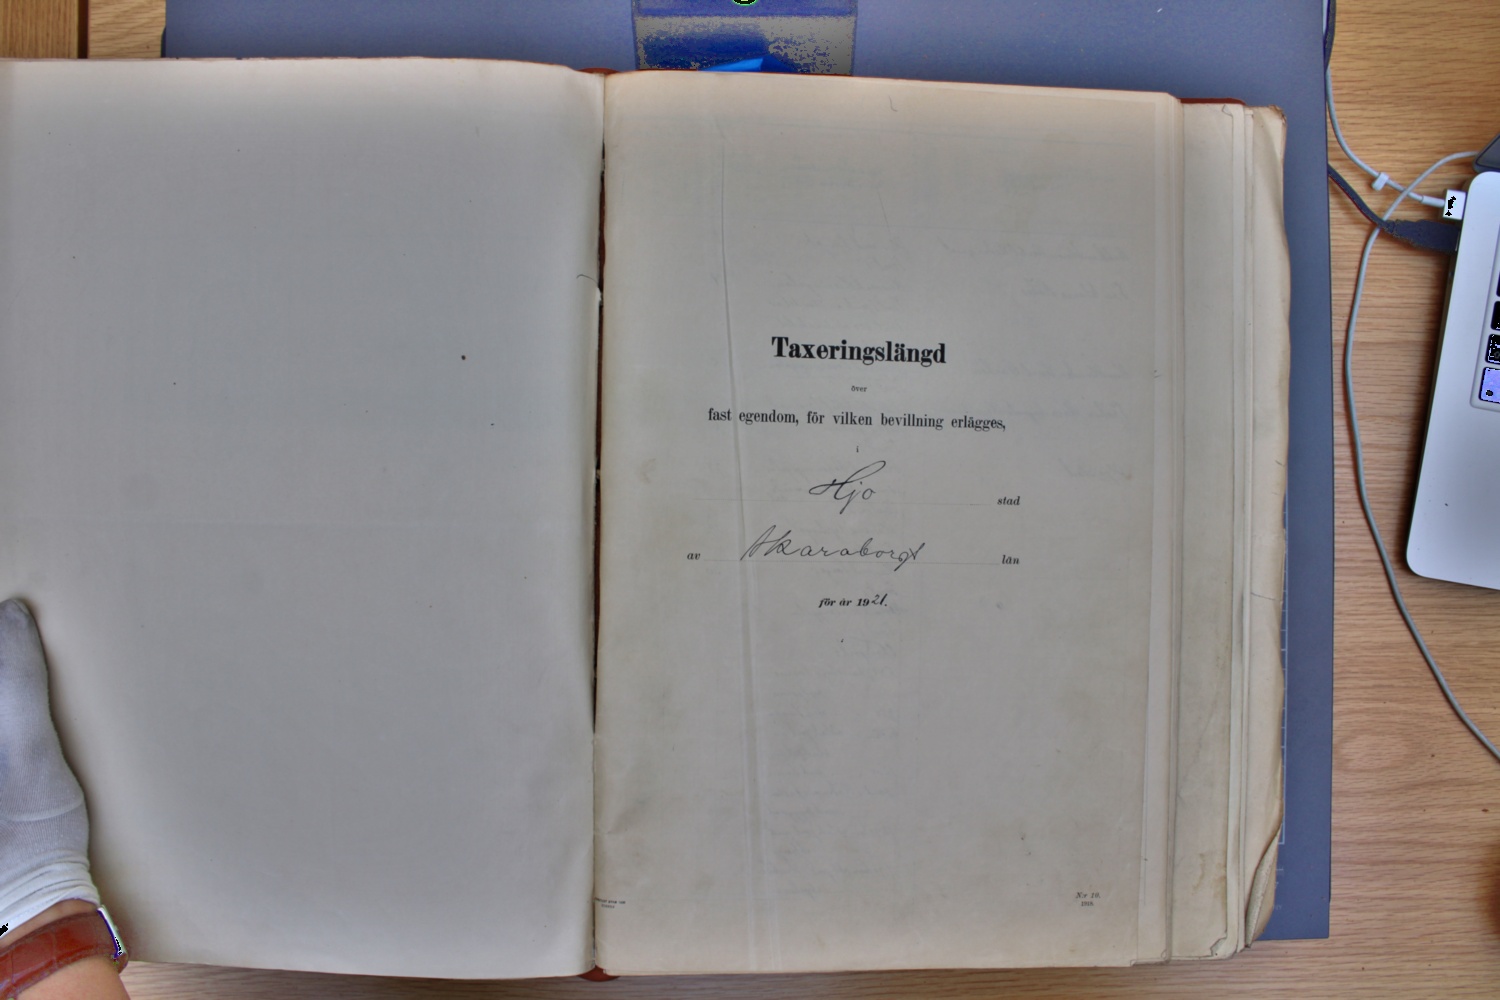 Taxeringslängd
över
fast egendom, för vilken bevillning erlägges,
i
Hjo stad
av Skaraborgs län
för år 1921.
N:r 10.